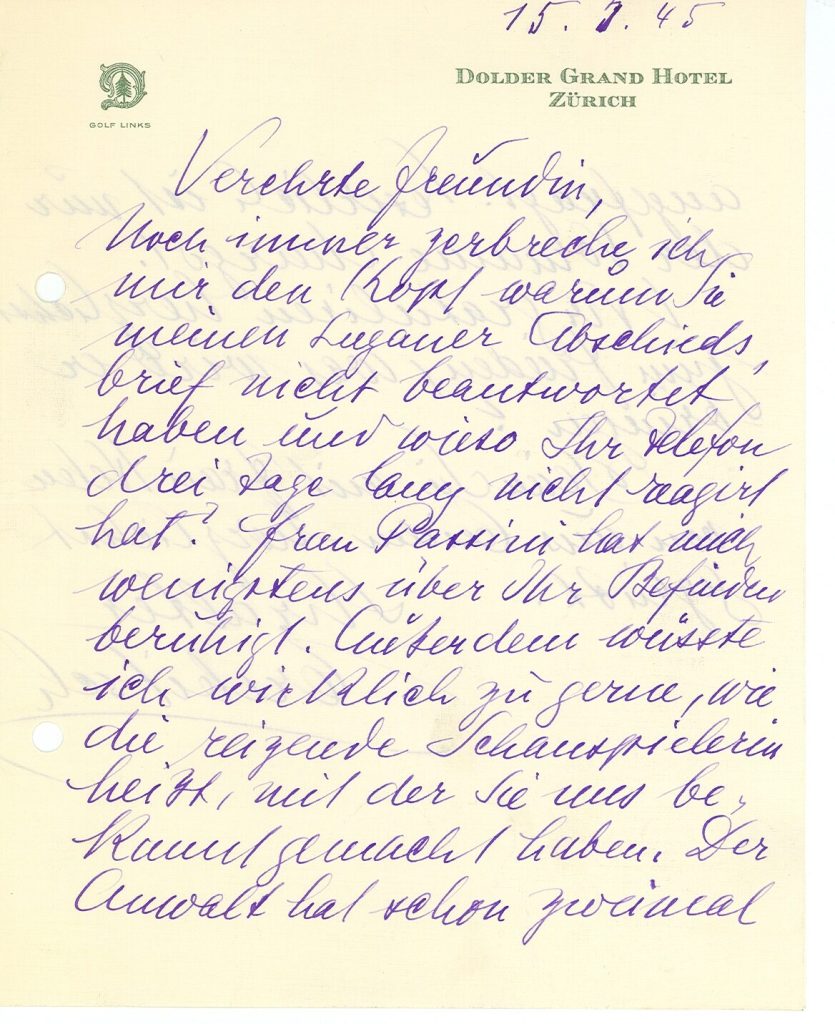 15. 7. 45
DOLDER GRAND HOTEL
ZÜRICH
GOLF LINKS
Verehrte Freundin,
Noch immer zerbreche ich
mir den Kopf warum Sie
meinen Luganer Abschieds-
brief nicht beantwortet
haben und wieso Ihr Telefon
drei Tage lang nicht reagirt
hat? Frau Passini hat mich
wenigstens über Ihr Befinden
beruhigt. Außerdem wüsste
ich wirklich zu gerne, wie
die reizende Schauspielerin
heißt, mit der Sie uns be-
kannt gemacht haben. Der
Anwalt hat schon zweimal